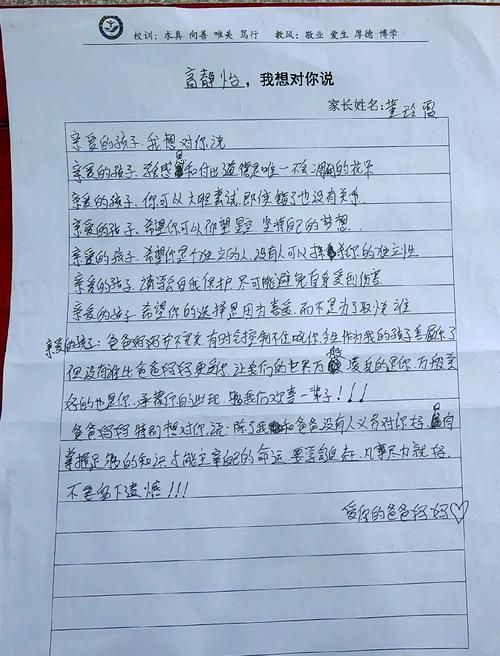 校训：求真 向善 唯美 笃行 教风：敬业 爱生 厚德 博学
高静怡，我想对你说
家长姓名：董玲霞
亲爱的孩子，我想对你说
亲爱的孩子，学感恩和付出 道德是唯一不会凋谢的花朵
亲爱的孩子，你可以大胆尝试，即使错了也没有关系．
亲爱的孩子，希望你可以仰望星空 坚持自己的梦想．
亲爱的孩子，希望你是个独立的人，没有人可以抹杀你的独立性
亲爱的孩子，请学会自我保护 尽可能避免自身受到伤害
亲爱的孩子，希望你的选择是因为喜爱，而不是为了取悦谁
亲爱的孩子：爸爸妈妈并不完美 有时会控制不住吼你 今生作为我的孩子委屈你了
但没有谁比爸爸妈妈更爱你，让我们的世界万般凌乱的是你，万般美
好的也是你，承蒙你的出现 够我们欢喜一辈子！！！
爸爸妈妈特别想对你说：除了我和爸爸没有人义务对你好，只有
掌握足够的知识才能主宰自己的命运 要学会自好，凡事尽力就好，
不要留下遗憾！！！
爱你的爸爸妈妈♡